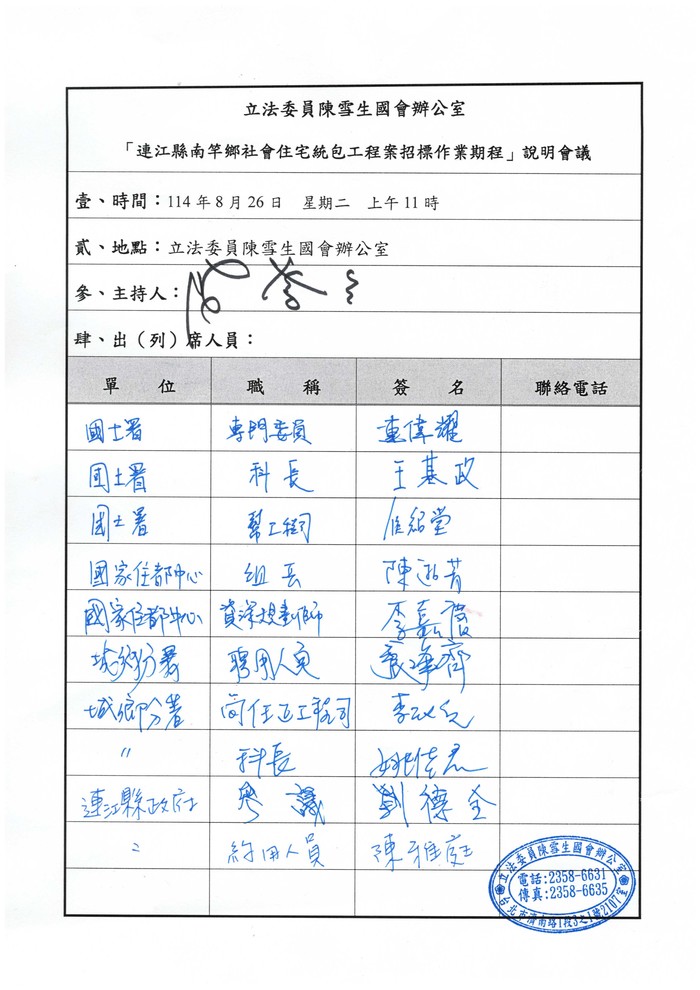 立法委員陳雪生國會辦公室
「連江縣南竿鄉社會住宅統包工程案招標作業期程」說明會議
壹、時間：114年8月26日 星期二 上午11時
貳、地點：立法委員陳雪生國會辦公室
參、主持人：
肆、出（列）席人員：
單位 職稱 簽名 聯絡電話
國土署 專門委員 連偉耀
國土署 科長 王基政
國土署 幫工程司
國家住都中心 組長 陳
國家住都中心 資深規劃師 李嘉
城鄉分署 聘用人員
城鄉分署 簡任正工程司 李
〃 科長 姚佳君
連江縣政府 參議 劉德全
〃 約用人員 陳雅庭
立法委員陳雪生國會辦公室
電話:2358-6631
傳真:2358-6635
台北市濟南路1段3之1號2107室